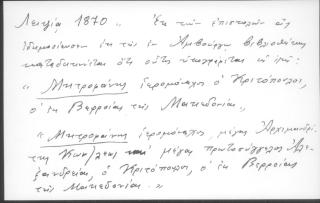 Λειψία 1870,, Ἐκ τῶν ἐπιστολῶν ἃς
ἐδημοσίευσεν ἐκ τῆς ἐν Ἁμβούργῳ βιβλιοθήκης
καταδεικνύεται ὅτι οὗτος ὑπεγράφετο ὡς ἑξῆς:
« Μητροφάνης ἱερομόναχος ὁ Κριτόπουλος,
ὁ ἐκ Βερροίας τῆς Μακεδονίας,,
« Μητροφάνης ἱερομόναχος, μέγας Ἀρχιμανδρί-
της Κων/λεως καὶ μέγας πρωτοσύγγελος Ἀλε-
ξανδρείας, ὁ Κριτόπουλος, ὁ ἐκ Βερροίας
τῆς Μακεδονίας.»